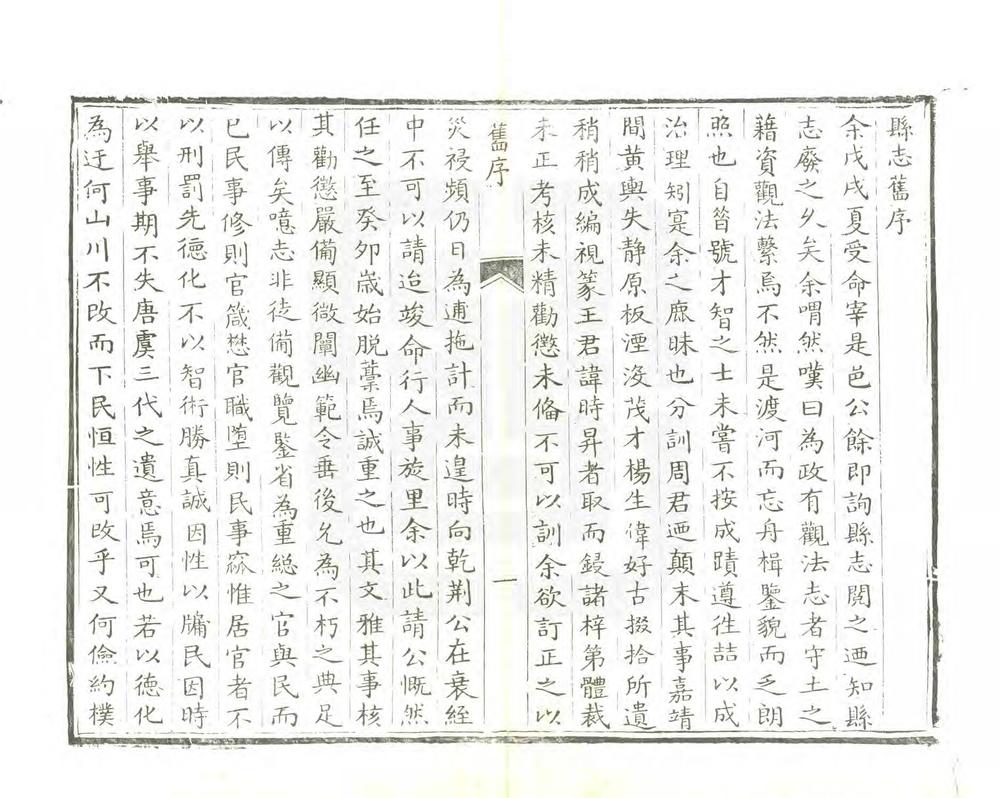 縣志舊序
余戊戌夏受命宰是邑公餘即詢縣志閱之迺知縣
志廢之乆矣余喟然嘆曰為政有觀法志者守土之
藉資觀法繫焉不然是渡河而忘舟楫鑒貌而乏朗
照也自昔號才智之士未嘗不按成蹟遵徃喆以成
治理矧寔余之庶昧也分訓周君迺顛末其事嘉靖
間黄輿失静原板湮沒茂才楊生偉好古掇拾所遺
稍稍成編視篆王君諱時昇者取而鋟諸梓第體裁
未正考核未精勸懲未俻不可以訓余欲訂正之以
舊序
一
災祲頻仍日為逋拖計而未遑時向乾荆公在衰絰
中不可以請迨竣命行人事旋里余以此請公慨然
任之至癸夘嵗始脱藁焉誠重之也其文雅其事核
其勸懲嚴備顯微闡幽範今垂後允為不朽之典足
以傳矣噫志非徒俻觀覽鑒省為重總之官與民而
已民事修則官箴懋官職墮則民事寐惟居官者不
以刑罰先徳化不以智術勝真誠因性以牖民因時
以舉事期不失唐虞三代之遺意焉可也若以徳化
為迂何山川不改而下民恒性可改乎又何儉約樸